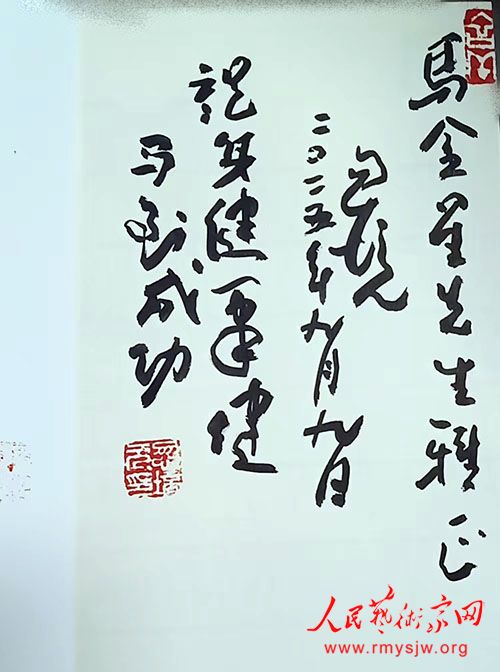 馬金星先生雅正
二〇一五年九月九日
祝身健筆健
马到成功
人民藝術家网
www.rmysjw.org